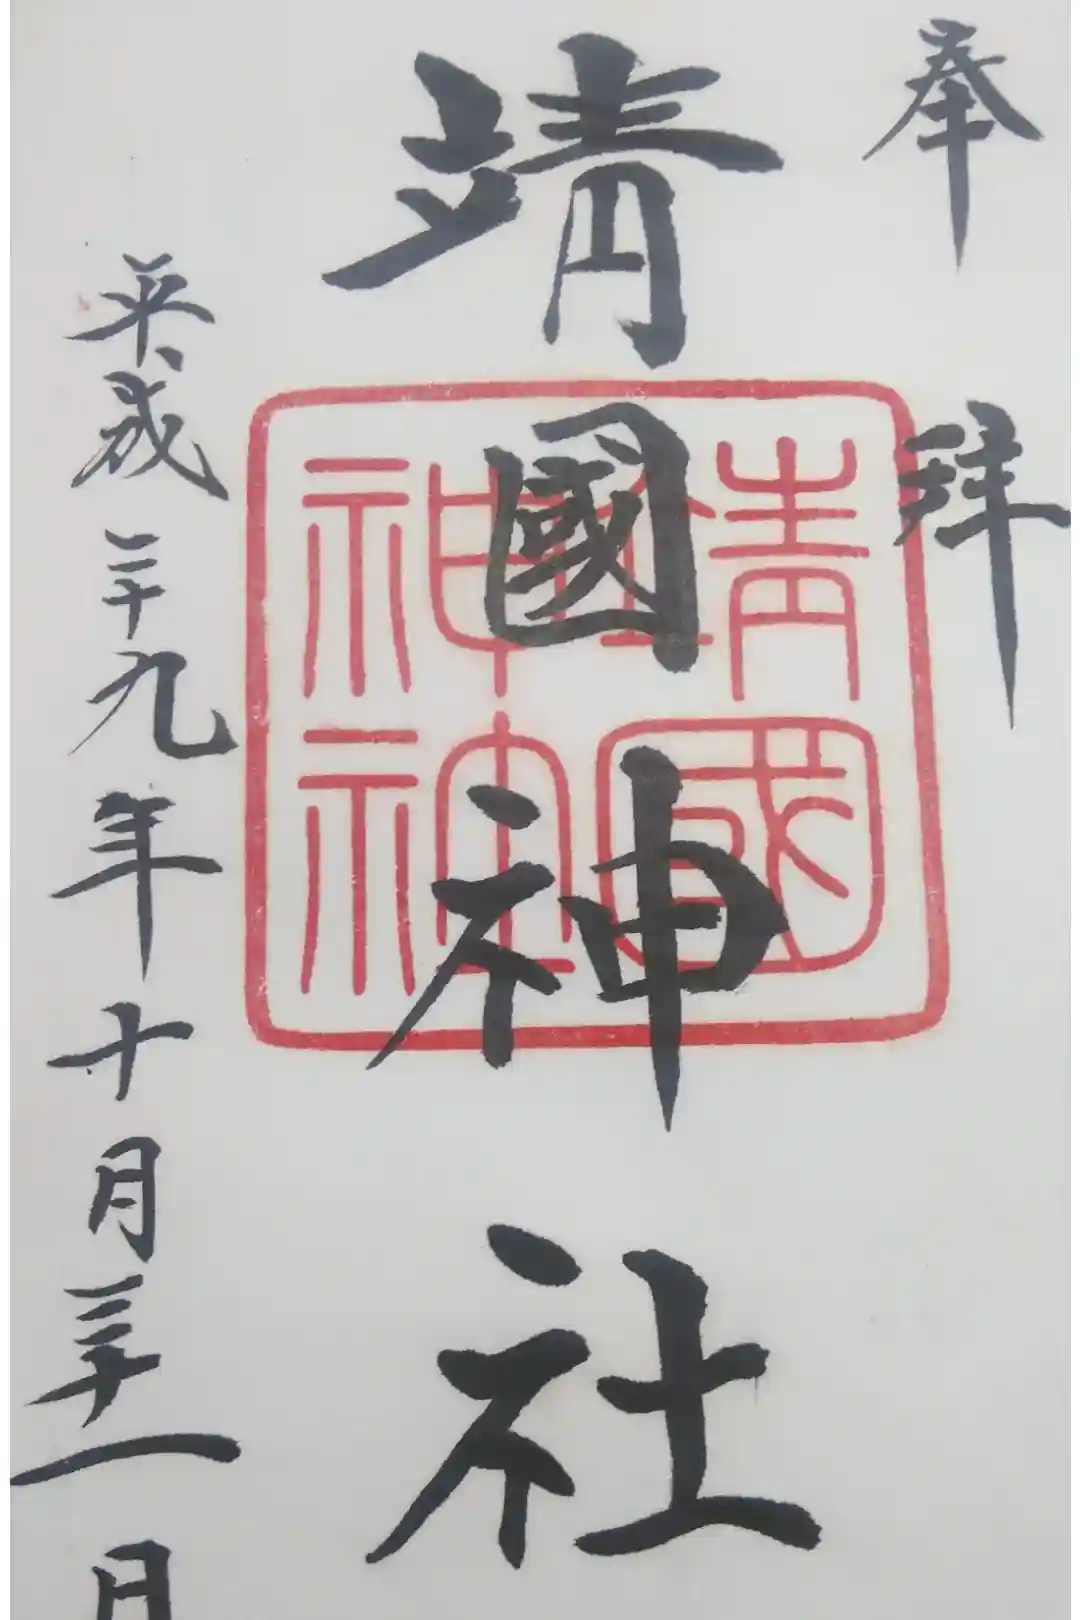 奉拝
靖國神社
靖國
神社
平成二十九年十月三十一日